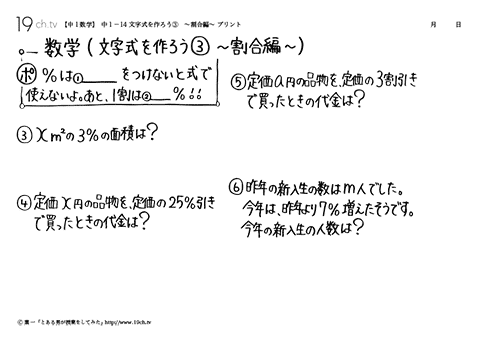 19ch.tv 【中1数学】 中1-14文字式を作ろう③ ~割合編~ プリント 月 日
数学(文字式を作ろう③ ~割合編~)
ポ %は①____をつけないと式で
使えないよ。あと、1割は②___%!!
③xm²の3%の面積は?
④定価x円の品物を、定価の25%引き
で買ったときの代金は?
⑤定価a円の品物を、定価の3割引き
で買ったときの代金は?
⑥昨年の新入生の数はm人でした。
今年は、昨年より7%増えたそうです。
今年の新入生の人数は?
© 葉一「とある男が授業をしてみた」http://www.19ch.tv